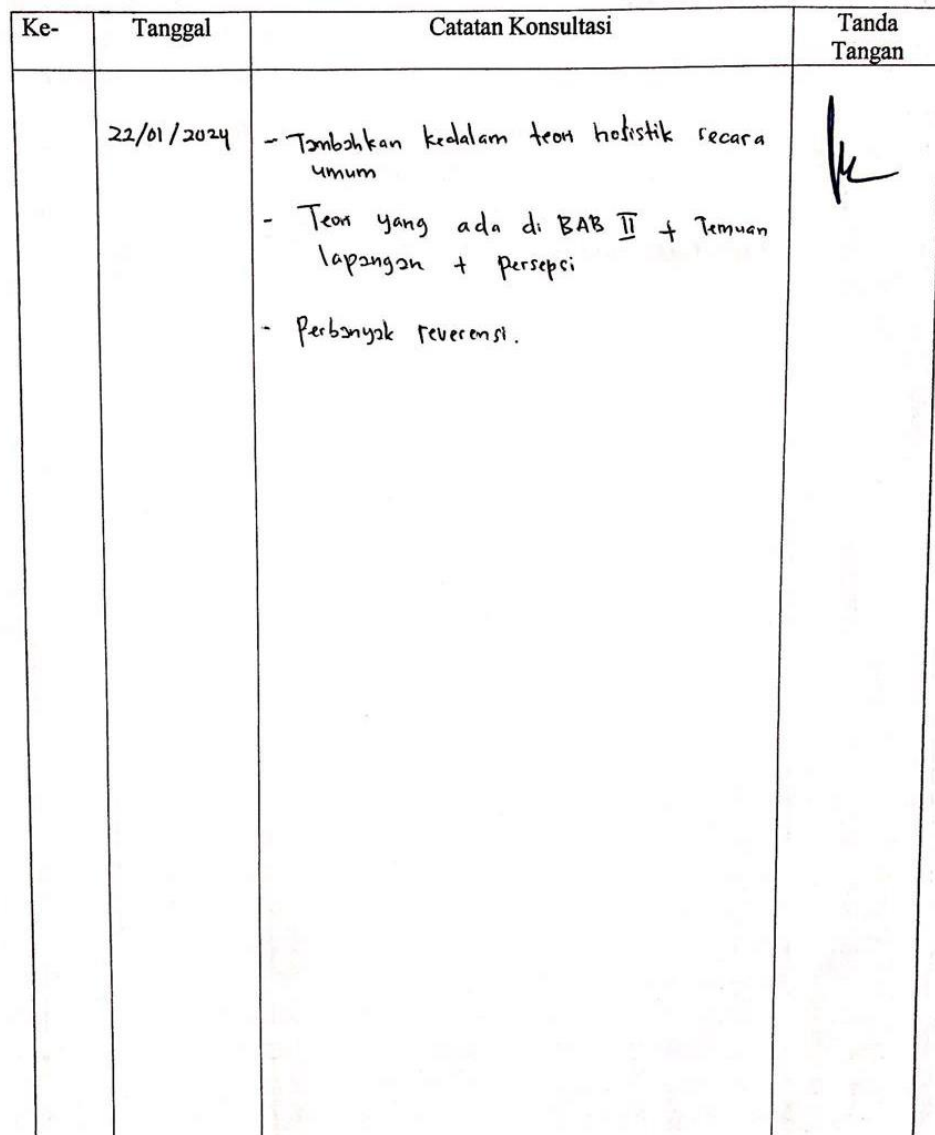 Ke- Tanggal Catatan Konsultasi Tanda
Tangan
22/01/2024 - Tambahkan kedalam teori holistik secara
umum
- Teori yang ada di BAB II + Temuan
lapangan + persepsi
- Perbanyak reverensi.